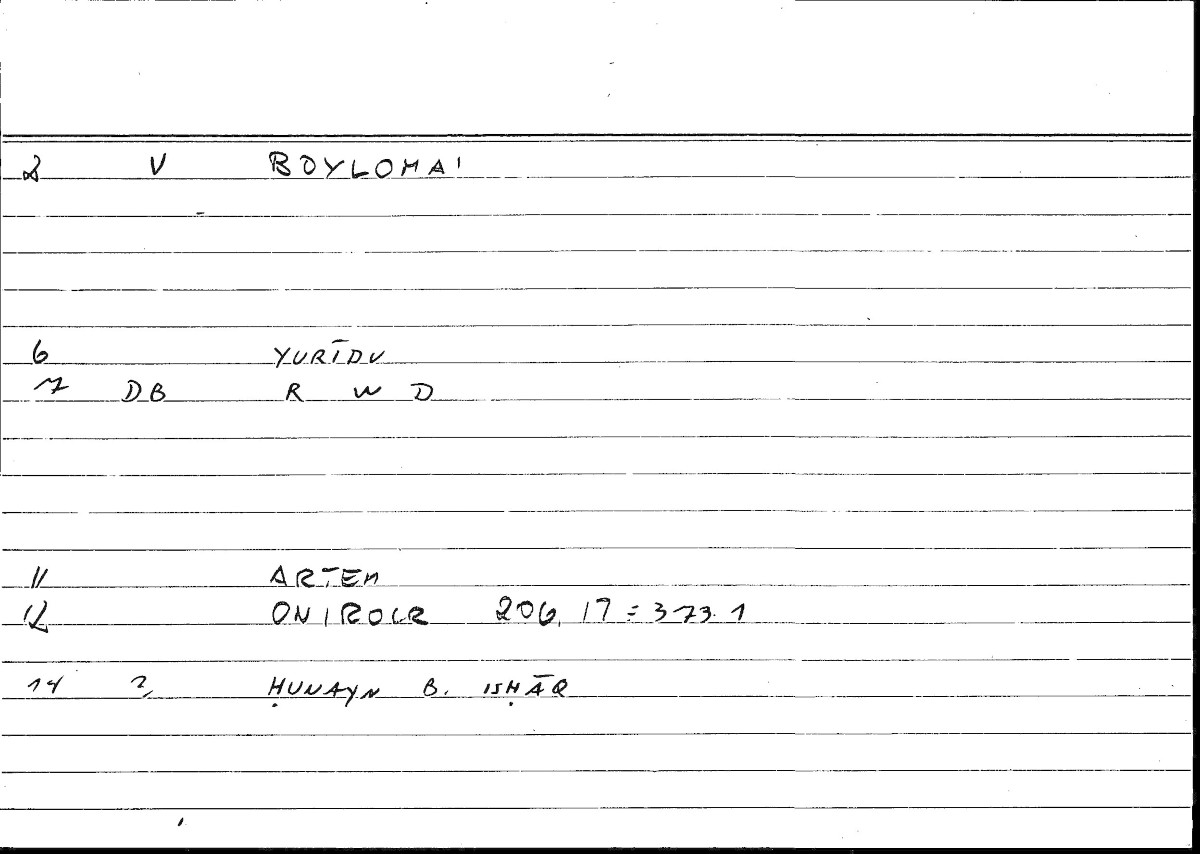 2 V BOYLOMAI
6 YURĪDU
7 DB R W D
11 ARTEM
12 ONIROCR 206, 17 = 373. 1
14 2, ḤUNAYN B. ISḤĀQ